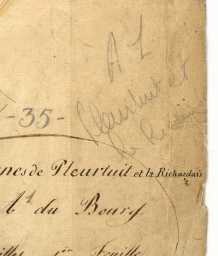 A 2
-35-
Pleurtuit et
la Richardais
nes de Pleurtuit et la Richardais
du Bourg
Feuille